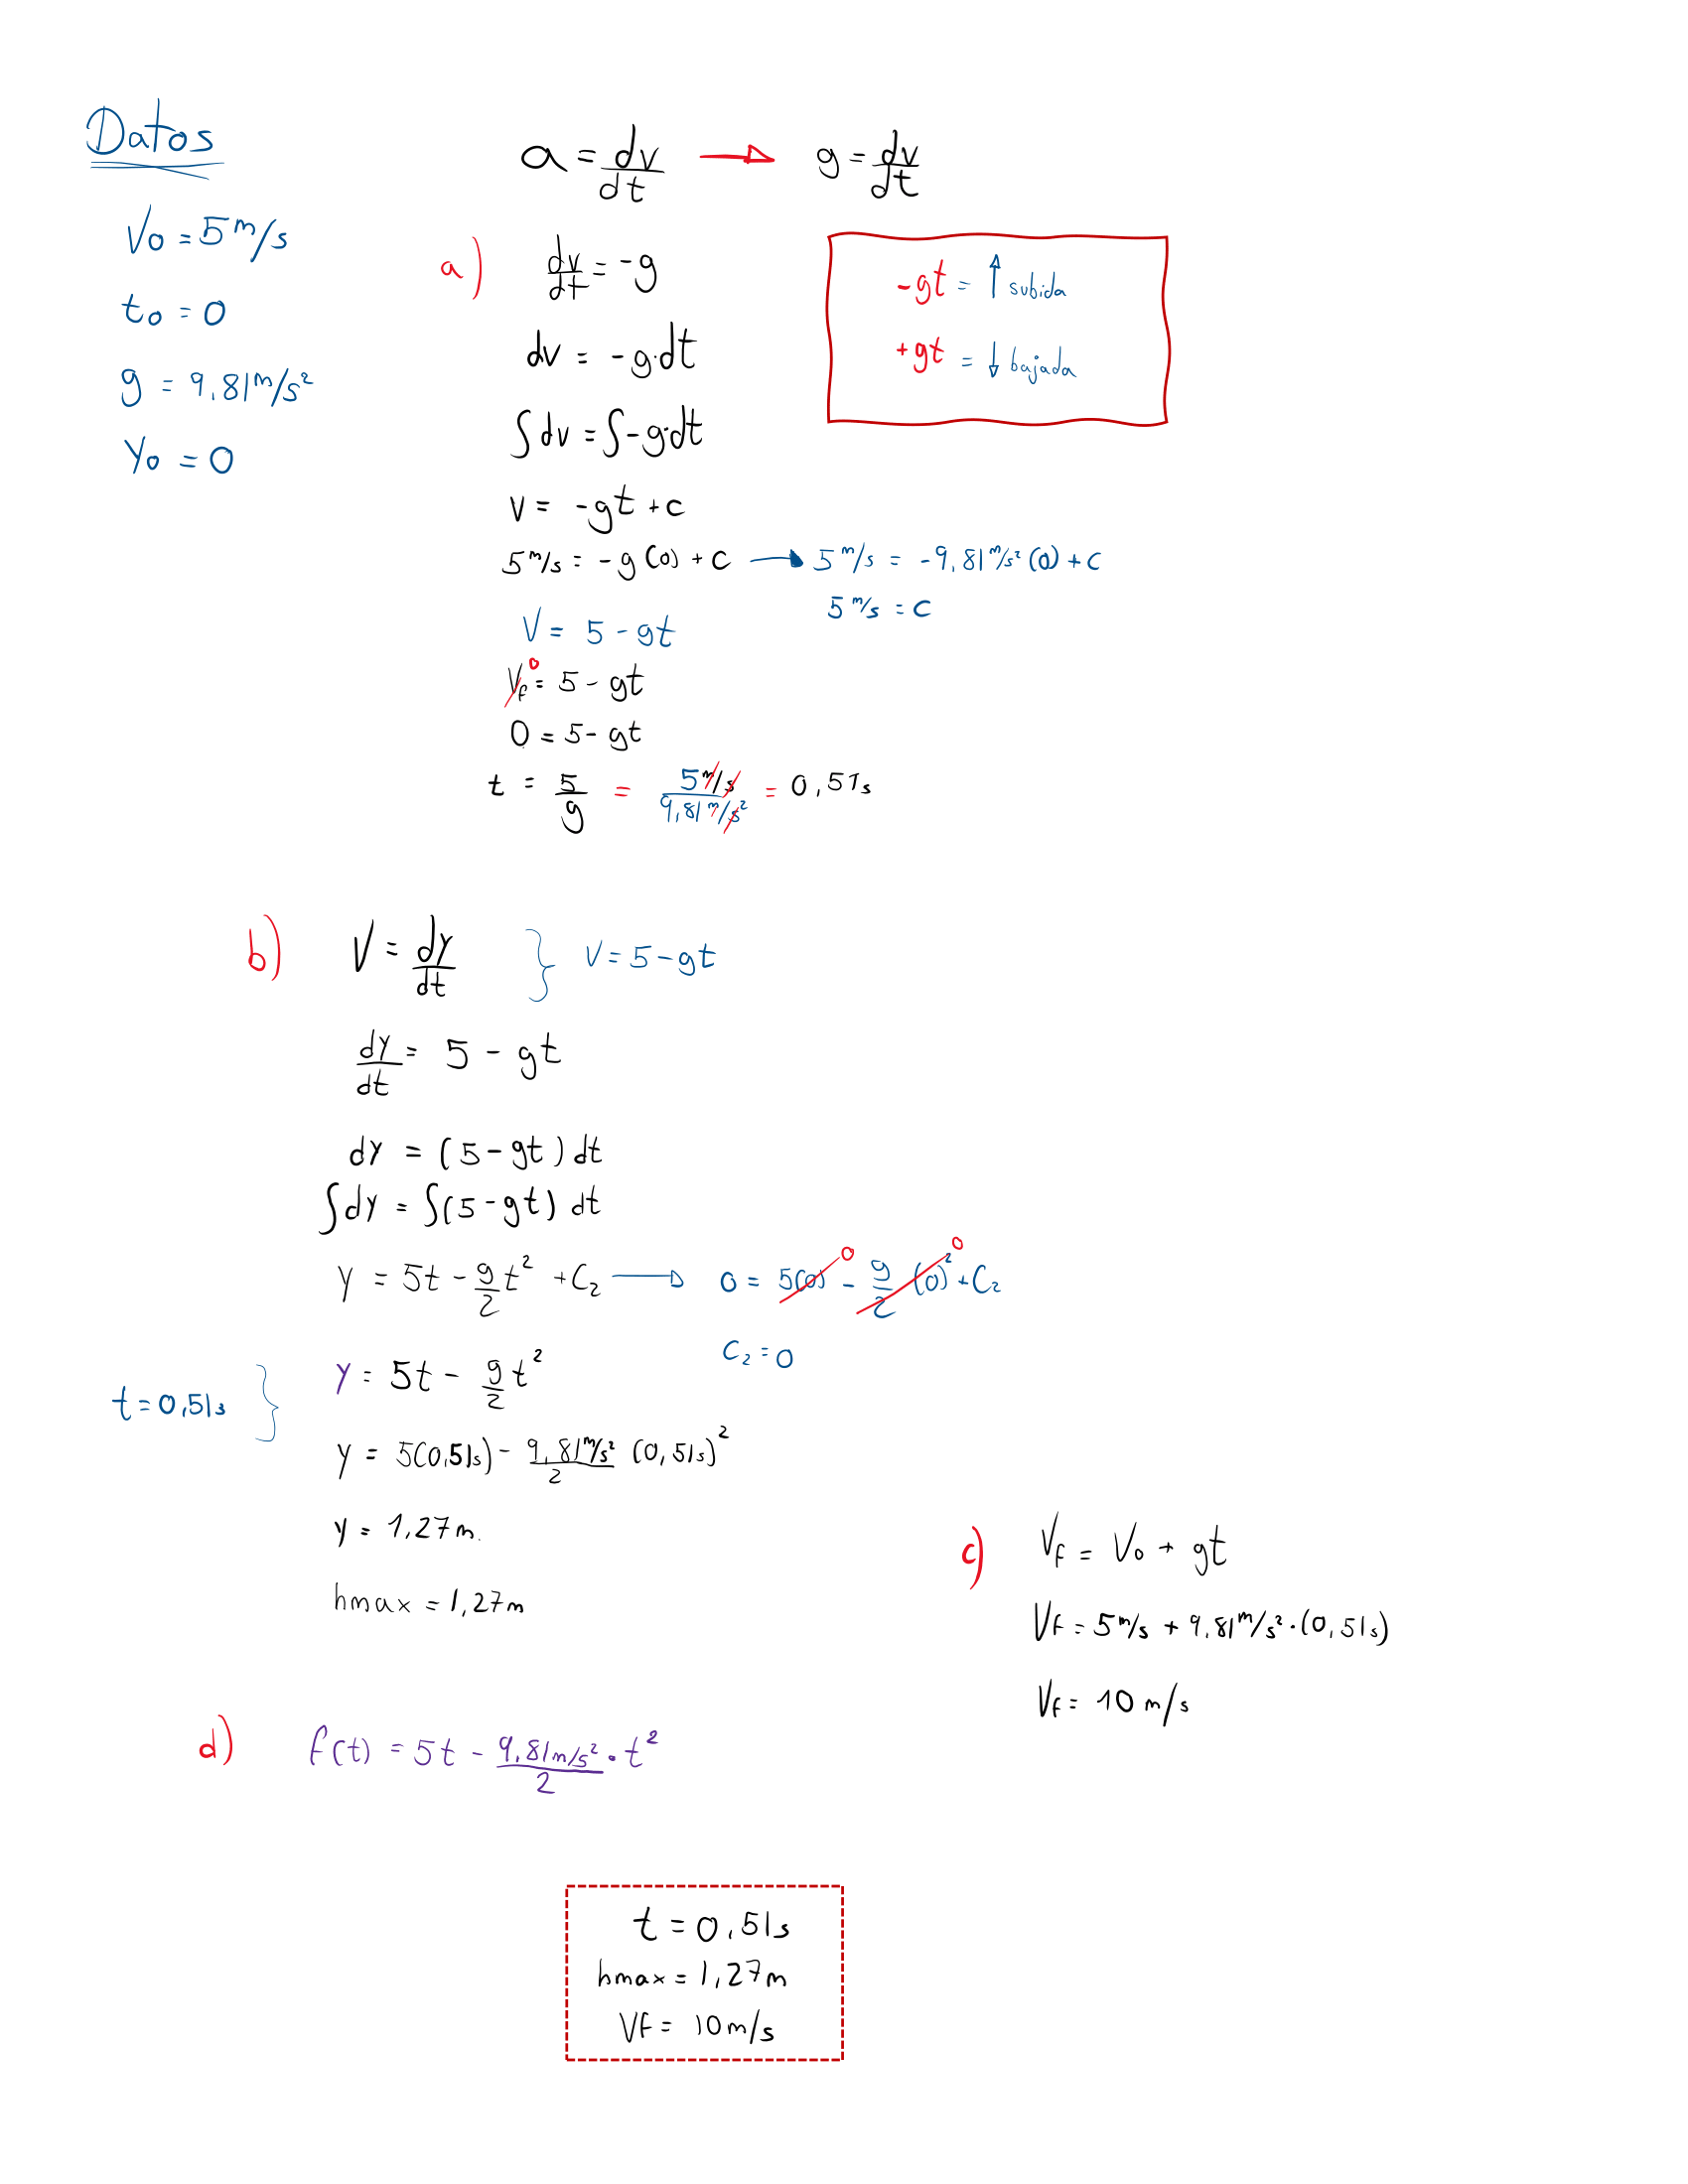 Datos
V₀ = 5 m/s
t₀ = 0
g = 9,81 m/s²
Y₀ = 0
a = dv/dt → g = dv/dt
a) dv/dt = -g
-gt = ↑ subida
+gt = ↓ bajada
dv = -g·dt
∫dv = ∫-g·dt
v = -gt + c
5 m/s = -g(0) + c → 5 m/s = -9,81 m/s² (0) + c
5 m/s = c
V = 5 - gt
V_f⁰ = 5 - gt
0 = 5 - gt
t = 5/g = 5 m/s / 9,81 m/s² = 0,51s
b) V = dy/dt } V = 5 - gt
dy/dt = 5 - gt
dy = (5 - gt) dt
∫dy = ∫(5 - gt) dt
y = 5t - g/2 t² + C₂ → 0 = 5(0)⁰ - g/2 (0)²⁰ + C₂
C₂ = 0
t = 0,51s } y = 5t - g/2 t²
y = 5(0,51s) - 9,81 m/s²/2 (0,51s)²
y = 1,27m.
hmax = 1,27m
c) V_f = V₀ + gt
V_f = 5 m/s + 9,81 m/s² · (0,51s)
V_f = 10 m/s
d) f(t) = 5t - 9,81 m/s²/2 · t²
t = 0,51s
hmax = 1,27m
Vf = 10 m/s